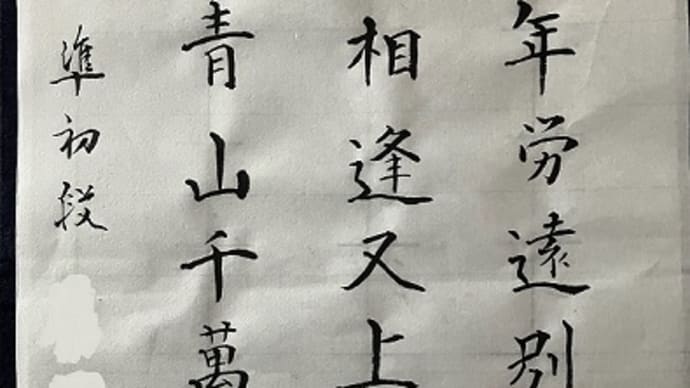 年労遠別
相逢又上
青山千萬
準初段